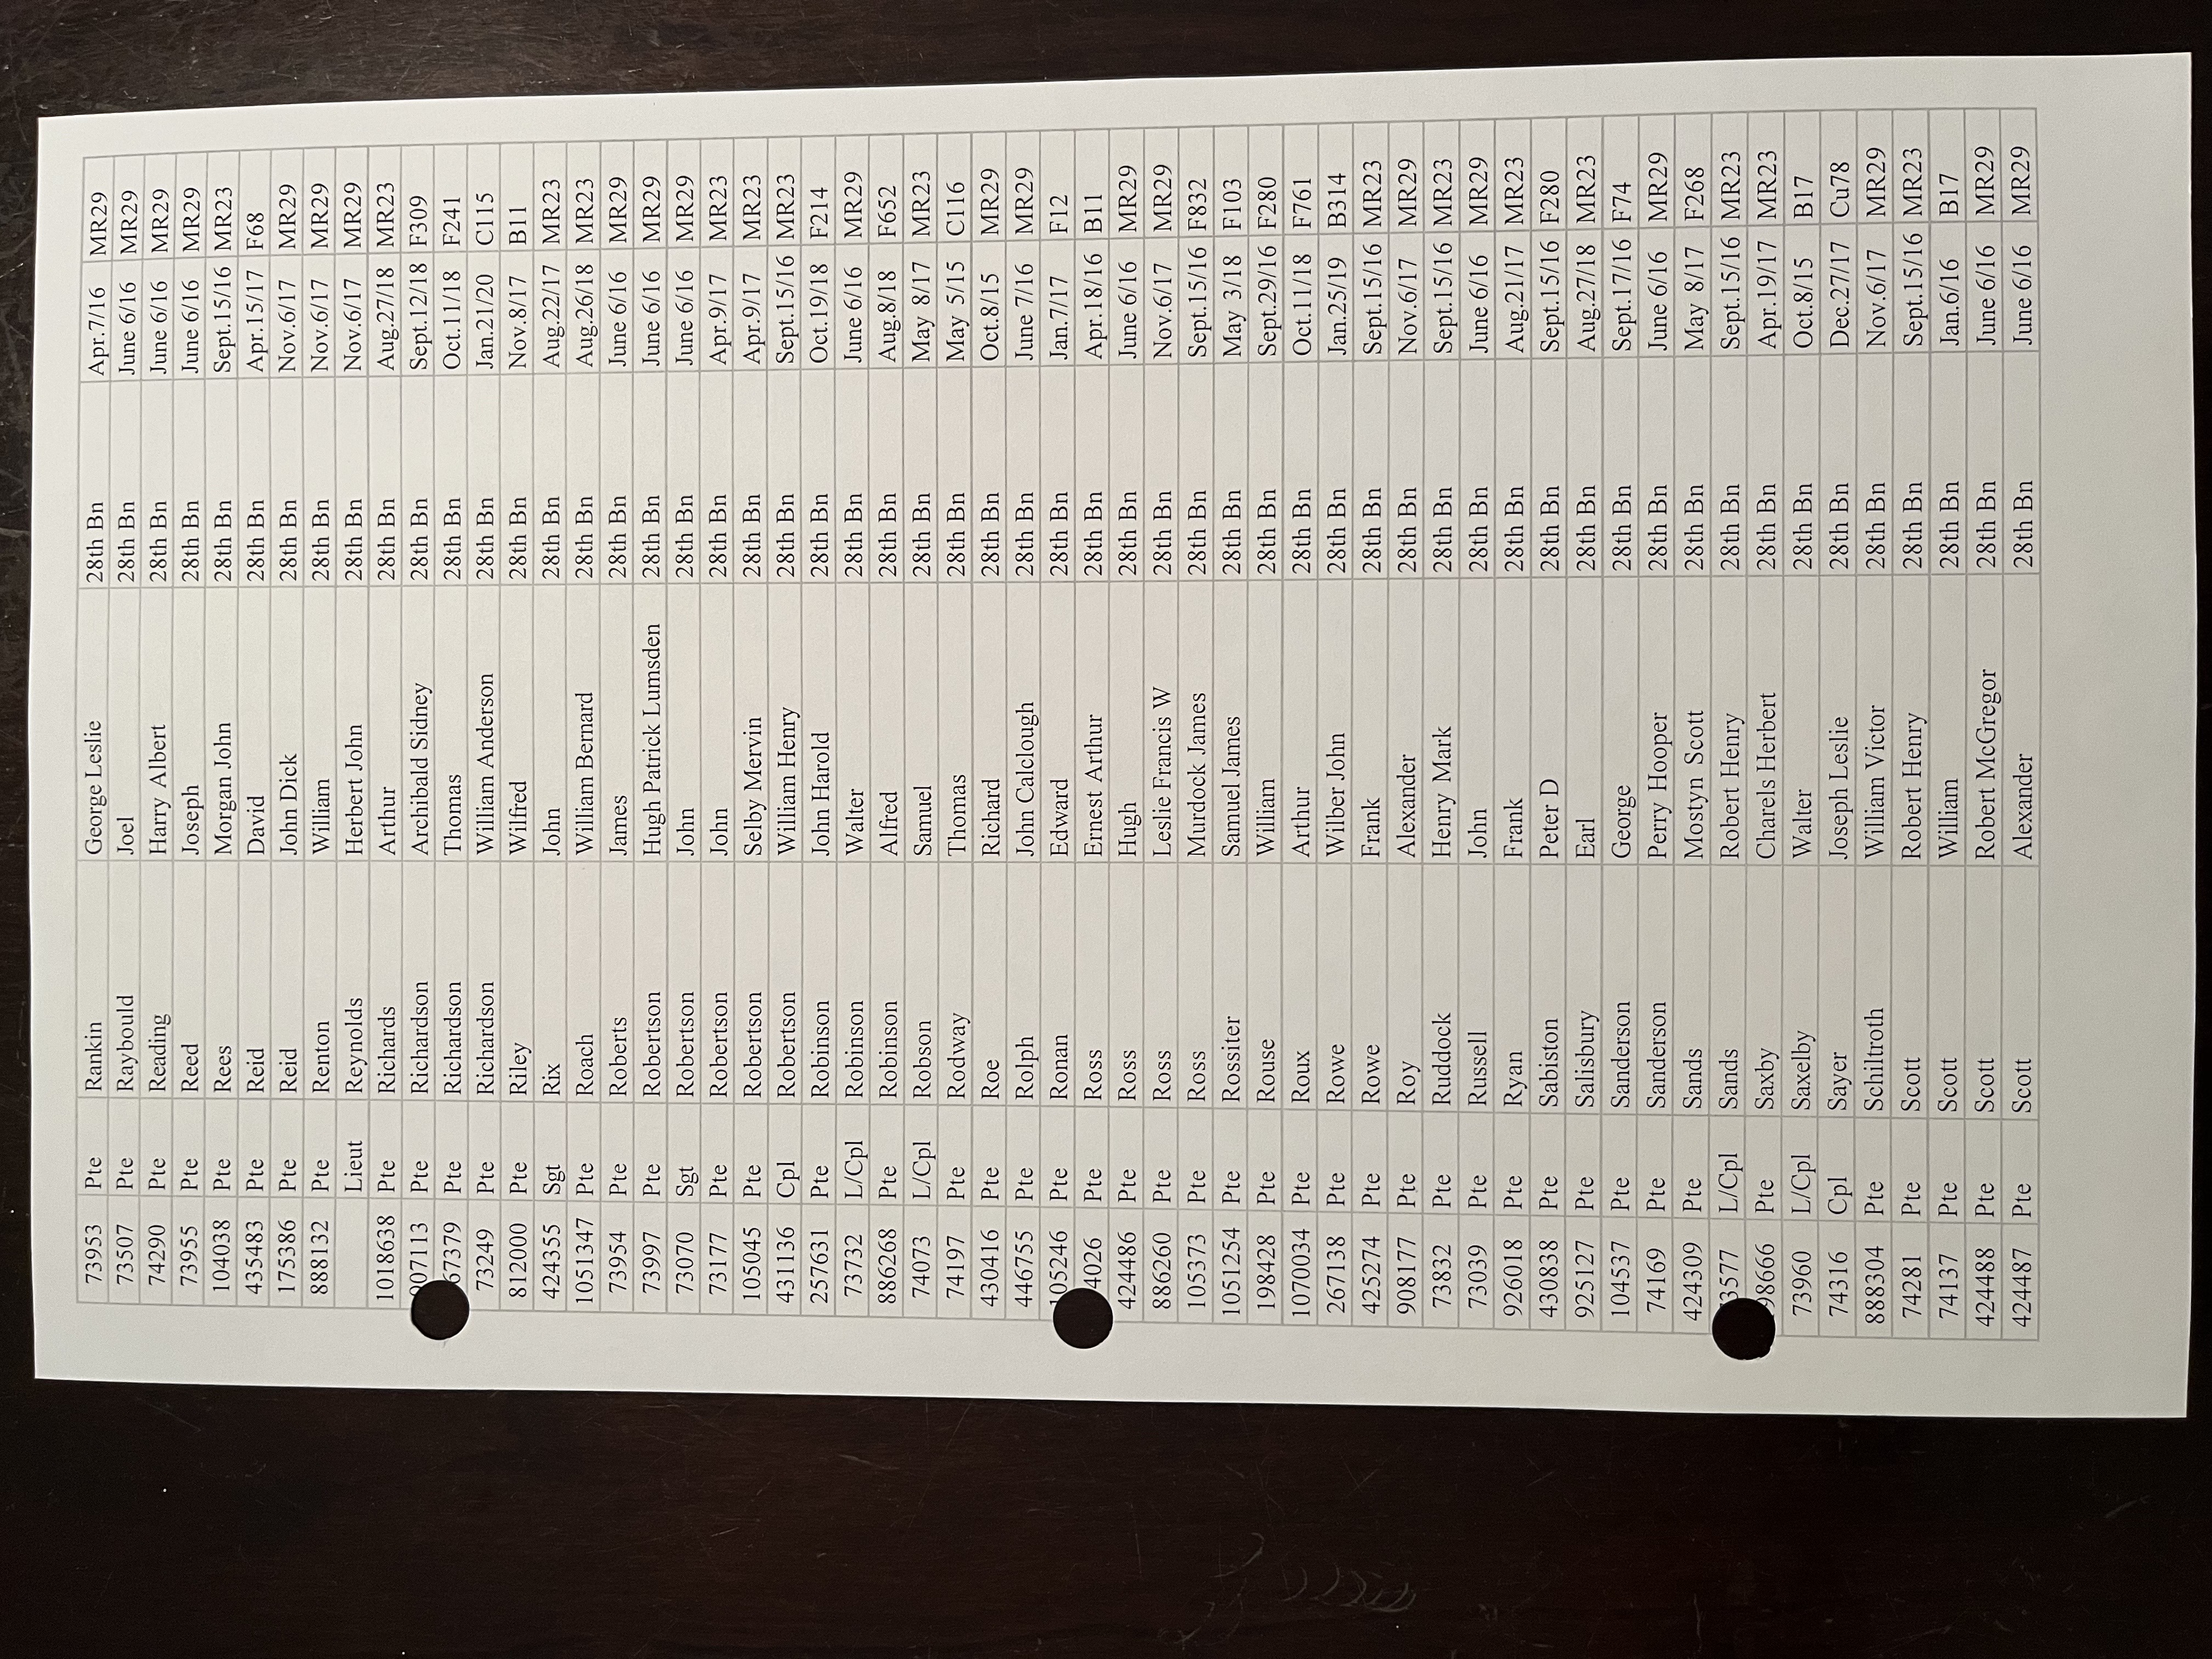 73953 Pte Rankin George Leslie 28th Bn Apr.7/16 MR29
73507 Pte Raybould Joel 28th Bn June 6/16 MR29
74290 Pte Reading Harry Albert 28th Bn June 6/16 MR29
73955 Pte Reed Joseph 28th Bn June 6/16 MR29
104038 Pte Rees Morgan John 28th Bn Sept.15/16 MR23
435483 Pte Reid David 28th Bn Apr.15/17 F68
175386 Pte Reid John Dick 28th Bn Nov.6/17 MR29
888132 Pte Renton William 28th Bn Nov.6/17 MR29
Lieut Reynolds Herbert John 28th Bn Nov.6/17 MR29
1018638 Pte Richards Arthur 28th Bn Aug.27/18 MR23
Pte Richardson Archibald Sidney 28th Bn Sept.12/18 F309
Pte Richardson Thomas 28th Bn Oct.11/18 F241
73249 Pte Richardson William Anderson 28th Bn Jan.21/20 C115
812000 Pte Riley Wilfred 28th Bn Nov.8/17 B11
424355 Sgt Rix John 28th Bn Aug.22/17 MR23
1051347 Pte Roach William Bernard 28th Bn Aug.26/18 MR23
73954 Pte Roberts James 28th Bn June 6/16 MR29
73997 Pte Robertson Hugh Patrick Lumsden 28th Bn June 6/16 MR29
73070 Sgt Robertson John 28th Bn June 6/16 MR29
73177 Pte Robertson John 28th Bn Apr.9/17 MR23
105045 Pte Robertson Selby Mervin 28th Bn Apr.9/17 MR23
431136 Cpl Robertson William Henry 28th Bn Sept.15/16 MR23
257631 Pte Robinson John Harold 28th Bn Oct.19/18 F214
73732 L/Cpl Robinson Walter 28th Bn June 6/16 MR29
886268 Pte Robinson Alfred 28th Bn Aug.8/18 F652
74073 L/Cpl Robson Samuel 28th Bn May 8/17 MR23
74197 Pte Rodway Thomas 28th Bn May 5/15 C116
430416 Pte Roe Richard 28th Bn Oct.8/15 MR29
446755 Pte Rolph John Calclough 28th Bn June 7/16 MR29
105246 Pte Ronan Edward 28th Bn Jan.7/17 F12
Pte Ross Ernest Arthur 28th Bn Apr.18/16 B11
424486 Pte Ross Hugh 28th Bn June 6/16 MR29
886260 Pte Ross Leslie Francis W 28th Bn Nov.6/17 MR29
105373 Pte Ross Murdock James 28th Bn Sept.15/16 F832
1051254 Pte Rossiter Samuel James 28th Bn May 3/18 F103
198428 Pte Rouse William 28th Bn Sept.29/16 F280
1070034 Pte Roux Arthur 28th Bn Oct.11/18 F761
267138 Pte Rowe Wilber John 28th Bn Jan.25/19 B314
425274 Pte Rowe Frank 28th Bn Sept.15/16 MR23
908177 Pte Roy Alexander 28th Bn Nov.6/17 MR29
73832 Pte Ruddock Henry Mark 28th Bn Sept.15/16 MR23
73039 Pte Russell John 28th Bn June 6/16 MR29
926018 Pte Ryan Frank 28th Bn Aug.21/17 MR23
430838 Pte Sabiston Peter D 28th Bn Sept.15/16 F280
925127 Pte Salisbury Earl 28th Bn Aug.27/18 MR23
104537 Pte Sanderson George 28th Bn Sept.17/16 F74
74169 Pte Sanderson Perry Hooper 28th Bn June 6/16 MR29
424309 Pte Sands Mostyn Scott 28th Bn May 8/17 F268
L/Cpl Sands Robert Henry 28th Bn Sept.15/16 MR23
Pte Saxby Charels Herbert 28th Bn Apr.19/17 MR23
73960 L/Cpl Saxelby Walter 28th Bn Oct.8/15 B17
74316 Cpl Sayer Joseph Leslie 28th Bn Dec.27/17 Cu78
888304 Pte Schiltroth William Victor 28th Bn Nov.6/17 MR29
74281 Pte Scott Robert Henry 28th Bn Sept.15/16 MR23
74137 Pte Scott William 28th Bn Jan.6/16 B17
424488 Pte Scott Robert McGregor 28th Bn June 6/16 MR29
424487 Pte Scott Alexander 28th Bn June 6/16 MR29